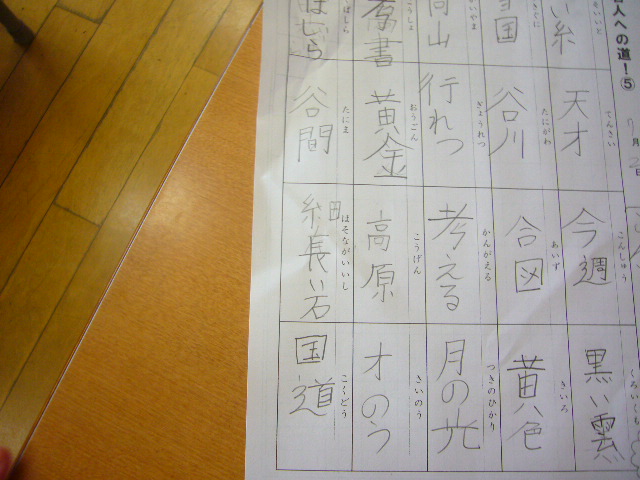 人への道!⑤
月
日
い糸
てんさい
天才
こんしゅう
今週
くろいくも
黒い雲
国
たにがわ
谷川
あいず
合図
きいろ
黄色
山
ぎょうれつ
行れつ
かんがえる
考える
つきのひかり
月の光
書
おうごん
黄金
こうげん
高原
さいのう
才のう
はしら
たにま
谷間
ほそながいいし
細長い石
こくどう
国道